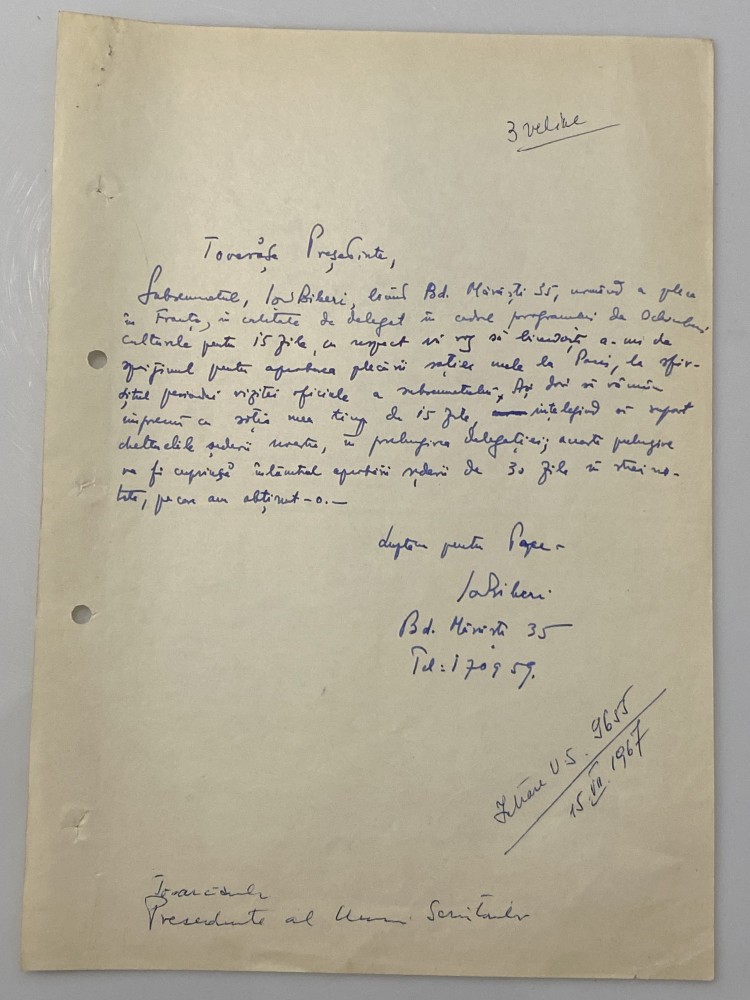 3 veline
Tovarășe Președinte,
Subsemnatul, Ion Biberi, Bd. Mărăști 35, urmând a pleca
în Franța, în calitate de delegat în cadrul programului de schimburi
culturale pentru 15 zile, cu respect vă rog să binevoiți a-mi da
sprijinul pentru aprobarea plecării soției mele la Paris, la sfîr-
șitul perioadei vizitei oficiale a subsemnatului. Aș dori să rămîn
împreună cu soția mea timp de 15 zile, înțelegînd să suport
cheltuielile șederii noastre, în prelungirea delegației; această prelungire
va fi cuprinsă înlăuntrul aprobării șederii de 30 zile în străină-
tate, pe care am obținut-o.—
Luptăm pentru Pace —
Ion Biberi
Bd. Mărăști 35
Tel: 170959.
U.S. 9655
15.VII.1967
Tovarășului
Președinte al Uniunii Scriitorilor